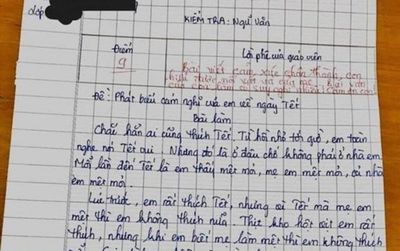 Lớp
KIỂM TRA: Ngữ Văn
Điểm Lời phê của giáo viên
9 Bài viết cảm xúc chân thành, con
hiểu được nỗi vất vả của
con con
Đề: Phát biểu cảm nghĩ của em về ngày Tết
Bài làm
Chắc hẳn ai cũng thích Tết. Từ hồi nhỏ tới giờ, em toàn
nghe nói Tết vui. Nhưng đó là ở đâu chứ không phải ở nhà em.
Mỗi lần đến Tết là em thấy mệt mỏi, mẹ em mệt mỏi, cả nhà
em mệt mỏi.
Lúc trước, em rất thích Tết, nhưng vì Tết mà mẹ em
mệt thì em không thích nữa. Thịt kho hột vịt em rất
thích, nhưng khi em biết mẹ làm mệt thì em không thích